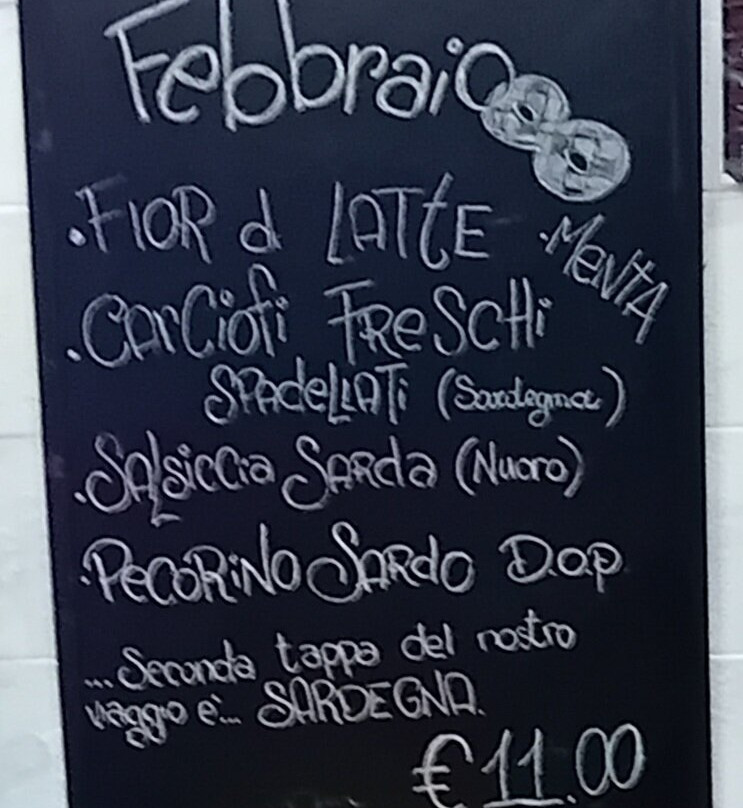 Febbraio
• FIOR di LATTE • MENTA
• CARCiOfi FReSCHi
SPAdELLATi (Sardegna)
• SALsiccia SARda (Nuoro)
• PeCORiNO SARdO D.O.P
... Seconda tappa del nostro
viaggio è... SARDEGNA.
€ 11.00